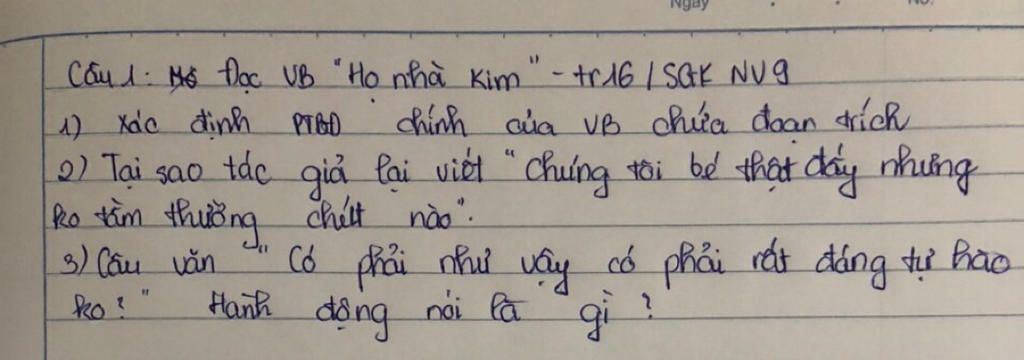 Ngày
No.
Câu 1: Đọc VB "Họ nhà Kim" - tr16 / SGK NV9
1) Xác định PTBĐ chính của VB chứa đoạn trích
2) Tại sao tác giả lại viết "Chúng tôi bé thật đấy nhưng
ko tầm thường chút nào".
3) Câu văn "Có phải như vậy có phải rất đáng tự hào
ko?" Hành động nói là gì?